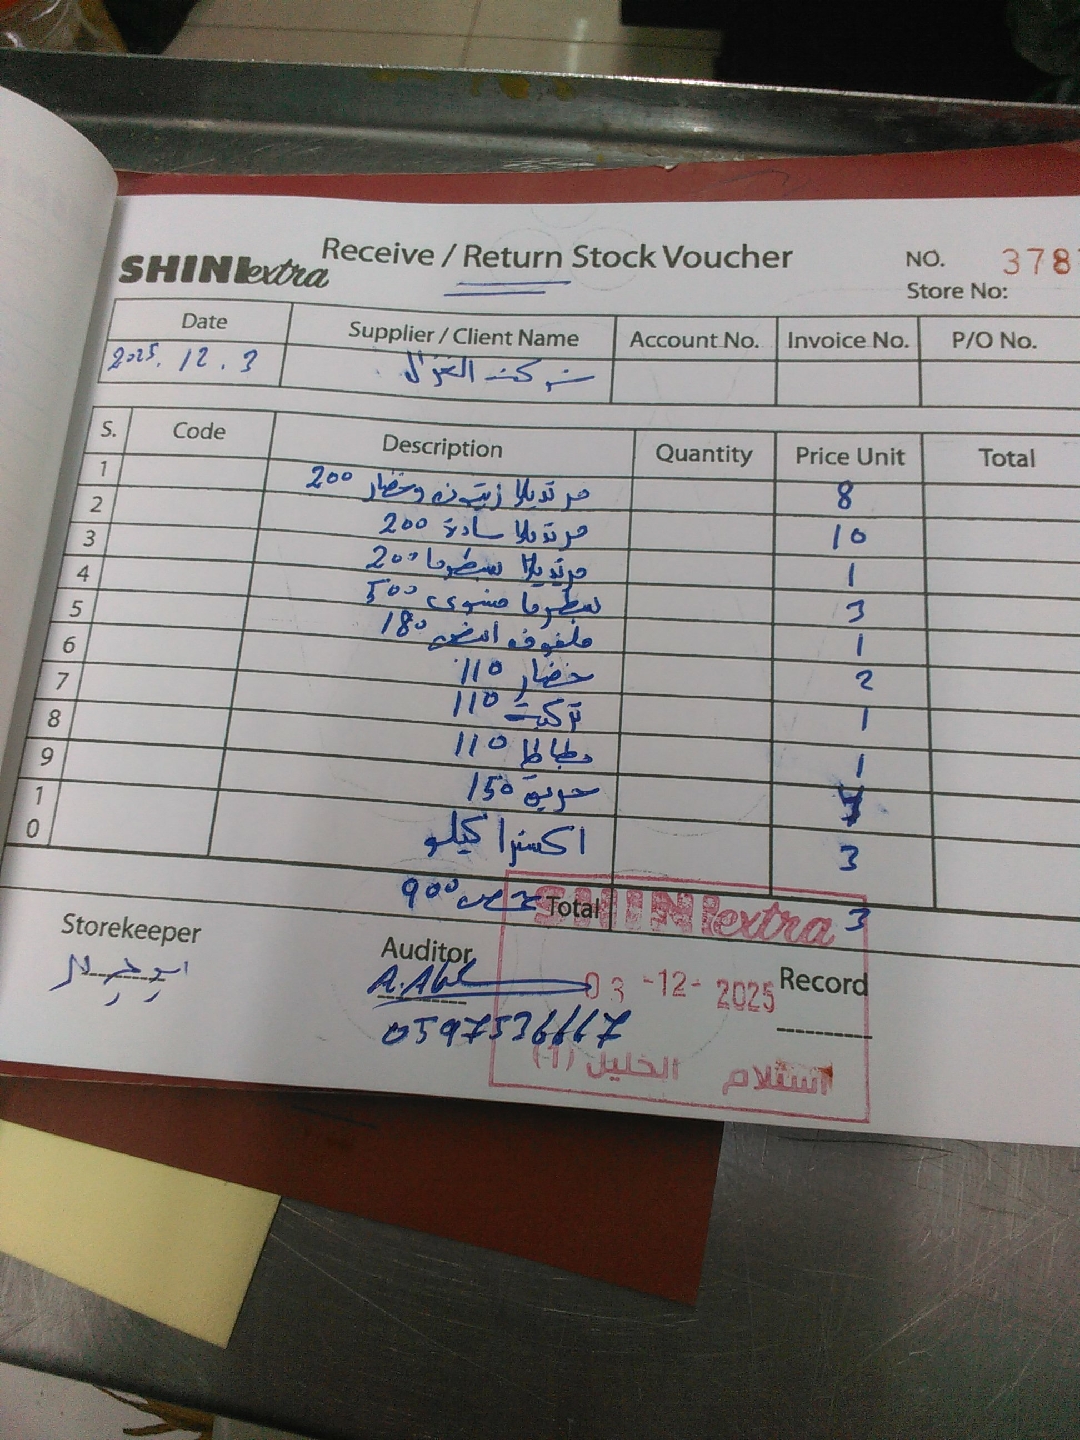 SHINIextra
Receive / Return Stock Voucher
NO. 378
Store No:
Date Supplier / Client Name Account No. Invoice No. P/O No.
2025. 12. 3 شركة الغزال
S. Code Description Quantity Price Unit Total
1 مرتديلا زيتون وخضار 200 8
2 مرتديلا سادة 200 10
3 مرتديلا بسطرما 200 1
4 بسطرما مشوي 500 3
5 ملفوف ابيض 180 1
6 خضار 110 2
7 تركيت 110 1
8 بطاطا 110 1
9 حريمة 150
10 اكسترا كيلو 3
Total حمص 900 3
SHINIextra
Storekeeper Auditor Record
A.Abd
03-12-2025
0597536667
استلام الخليل (1)